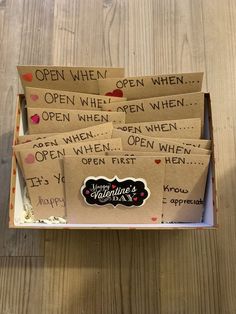 OPEN WHEN
OPEN WHEN...
OPEN WHEN
OPEN WHEN...
OPEN WHEN
OPEN WHEN...
OPEN WHEN
OPEN WHEN...
OPEN WHEN
OPEN FIRST
HEN...
It's Yo
happy
Happy
Valentine's
DAY
Know
appreciate